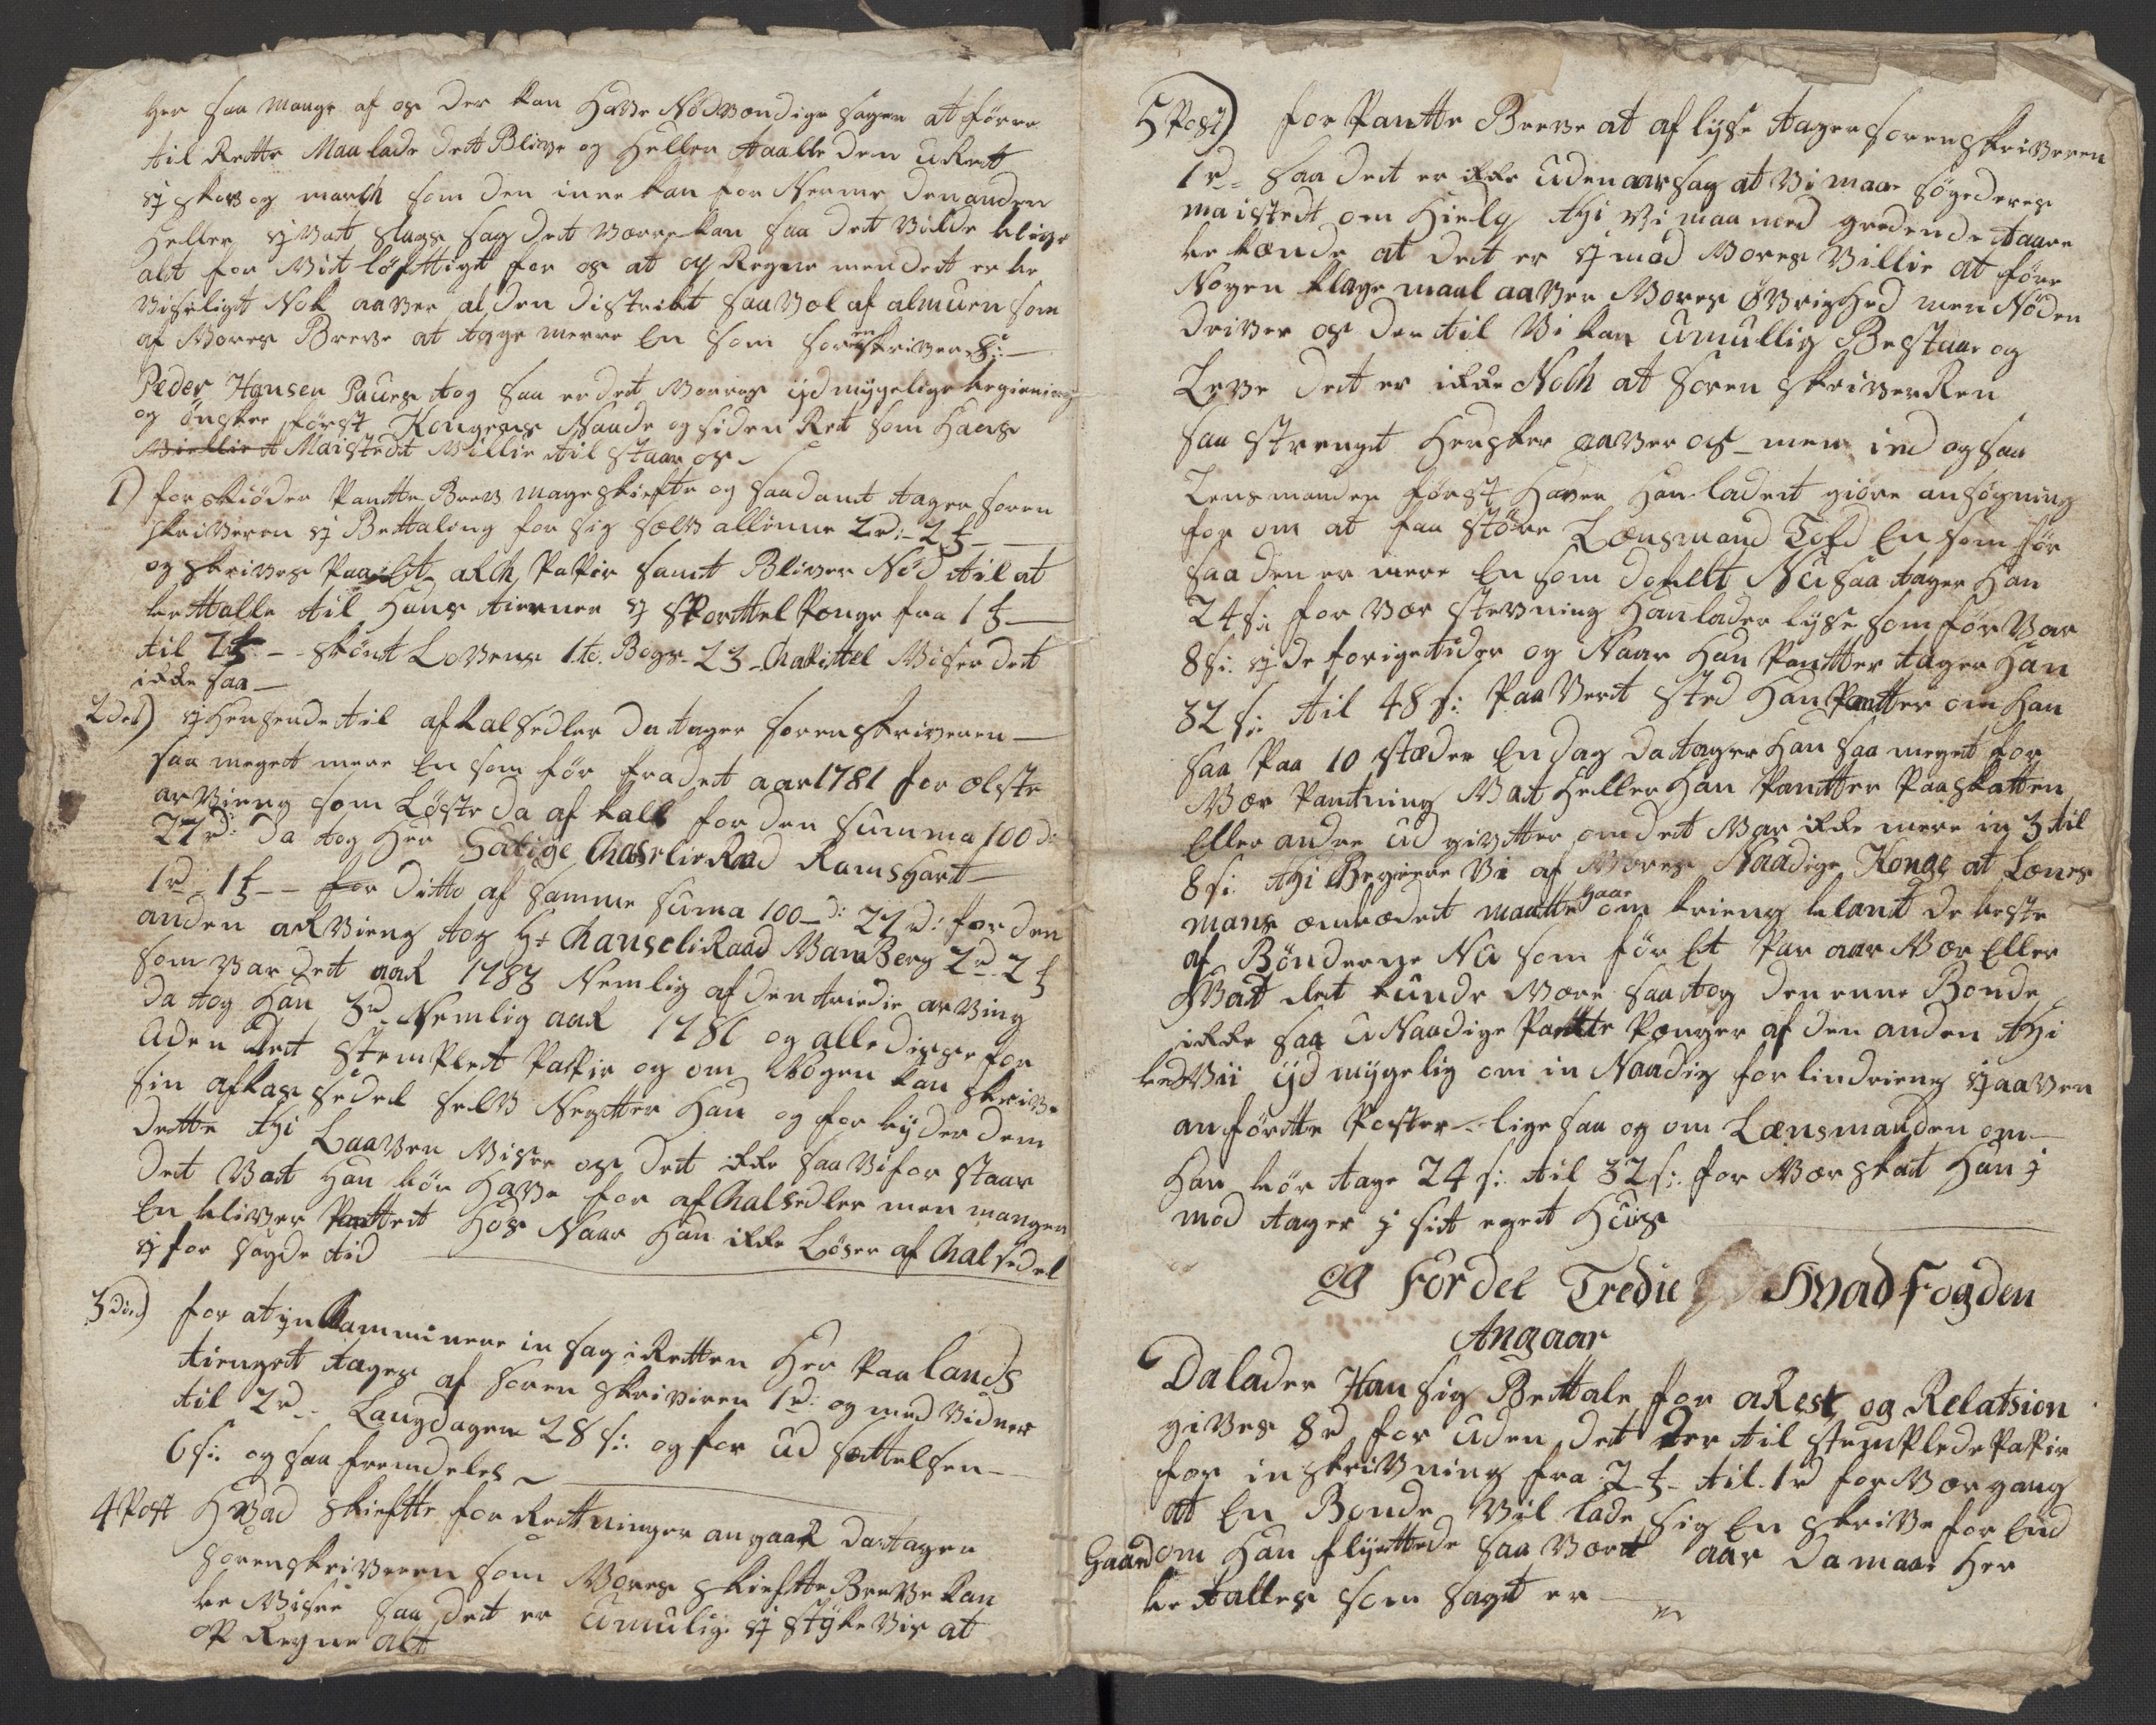 her saa mange af os der kan Have Nødvendige sager at føre
til Rette Maa lade dett Blive og Heller taalle den uRett
ij skov og march som den inne kan for Nerme den anden
Heller ij vat slags sag det være kan saa det vilde blive
alt for vit løfttigt for os at op Regne men det er be
viseligt Nok aaver al den distrikt saa vol af almuen som
af Vores Breve at tage merre En som sorenskriver Sr:
Peder Hansen Paues tog saa er det Voores ijdmygelige begiering
og ønsker først Kongens Naade og siden Ret som Hans
Maistedt Villie til staar os
1) for skiøder Pantte Brev mageskiefte og saadant tager soren
skriveren ij Bettaling for sig sælv allinne 2 rd: 2 ₶
og skrives Paa et arch Papir samt Bliver Nød til at
bettalle til Hans tienner ij Sporttel Penge fra 1 ₶
til 2 ₶ - skønt Lovens 1te. Bogs 23 Chapittel Viser det
ikke saa
2det) ij Henseende til afkalsedler da tager sorenskriveren
saa meget mere En som før fra det aar 1781 for elste
arvieng som Løste da af kall for den summa 100 d:
27 rd: da tog Her Salige Chanselie Raad Ramshart
1 rd - 1 ₶ - for ditto af samme suma 100 d: 27 rd: for den
anden arvieng tog Hr Chanseli Raad VamBerg 2 rd 2 ₶
som var det aar 1783 Nemlig af den triedie arving
da tog Han 3 rd Nemlig aar 1786 og alle disse for
uden det stemplet Pappir og om Nogen kan skrive
sin afkas sedel selv Negtter Han og forbyder dem
dette thi Laaven Viser os det ikke saa vi forstaar
det vat Han bør Have for afChalsedler men mangen
En bliver Panttet Hos Naar Han ikke Løser afChalsedel
ij for sagde tid
3die) for at ynkamminere in sag i Retten Her Paa lands
tienget tages af sorenskriveren 1 rd: og med vidner
til 2 rd Laugdagen 28 s: og for ud sættelsen
6 s: og saa fremdeles
4 Post Hvad skiftte for Rettninger angaar da tager
sorenskriveren som Vores skieftte Breve kan
be Viise saa det er umulig ij støke vis at
op Regne alt
5 Post) for Pantte Breve at aflyse tager sorenskriveren
1 rd saa det er ikke uden aarsag at vi maa søge deres
maisted om Hielp thi vi maa med gredende taare
bekænde at det er ij mod Vores Villie at føre
Nogen klagemaal aaver Vores Øvrighed men Nøden
driver os der til Vi kan umullig Bestaa og
Leve det er ikke Noch at soren skriverRen
saa strengt Hersker aaver os - men ind og saa
Lensmanden først Haver Han ladet giøre ansøgning
for om at faa støre Lensmand Told En som før
saa den er mere En som dobelt Nu saa tager Han
24 s: for vær stevning Han lader lyse som før var
8 s: ij de forige tider og Naar Han Pantter tager Han
32 s: til 48 s: Paa vert sted Han Pantter om Han
saa Paa 10 stæder En dag da tager Han saa meget for
Vær Pantning Vat Heller Han Pantter Paa skatten
Eller andre ud givtter om det Var ikke mere in 3 til
8 s: thi Begiere Vi af Vores Naadige Konge at Lens
mans embedet maatte gaa om krieng blant de beste
af Bønderne Nu som før Et Par aar Vær Eller
Hvat det kunde Være saa tog den enne Bonde
ikke saa uNaadige Pantte Penger af den anden thi
bed Vii ijdmygelig om in Naadig forlindrieng ij aaven
anførtte Poster - lige saa og om Lænsmanden om
Han bør tage 24 s: til 32 s: for Vær skat Han i
mod tager i sit eget Huus
og Fordel Tredie Hvad Fogden
Angaar
Da lader Han sig Bettale for aRest og Relatsion
gives 8 rd for uden det der til stemplede Papir
for inskrivning fra 2 ₶ til 1 rd for Vær gang
at En Bonde Vil lade sig En skrive for En
Gaard om Han flyttede saa Vært aar da maa Her
betalles som sagt er